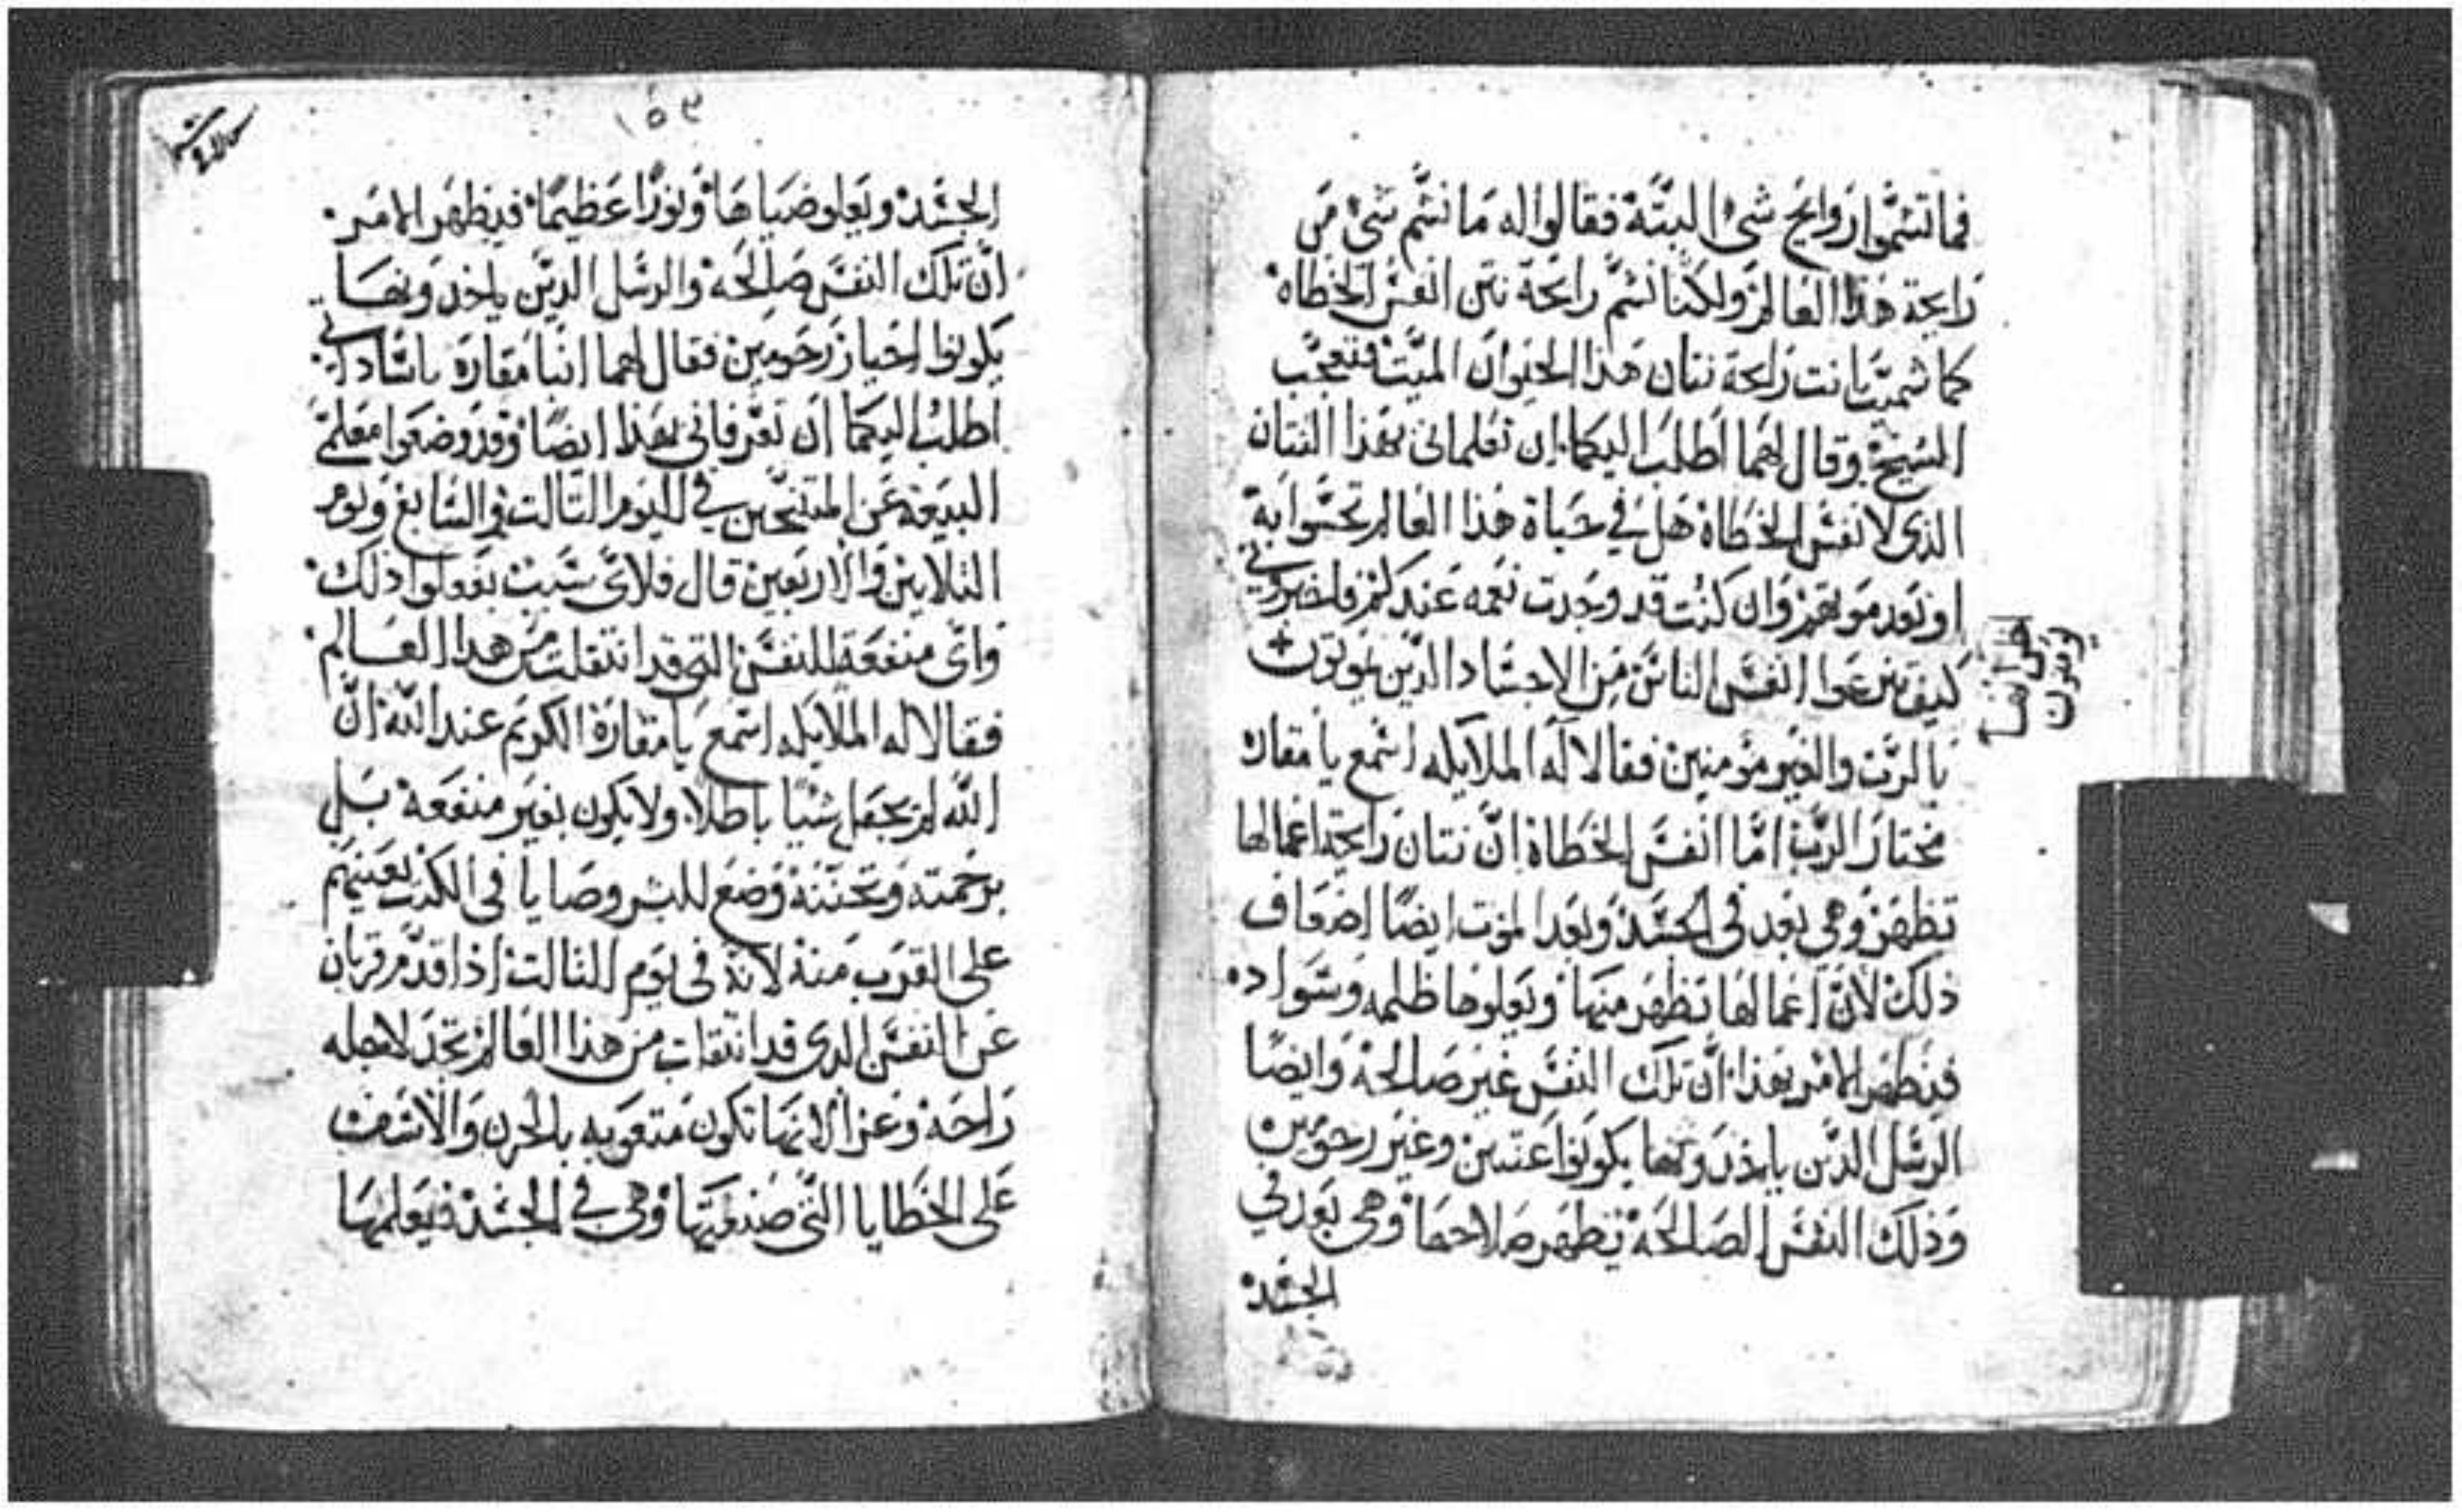 فما تشموا روايح شى البتة فقالوا له ما نشم شى من
رايحة هذا العالم ولكننا نشم رايحة نتن انفس الخطاه
كما شميت انت رايحة نتان هذا الحيوان الميت فتعجب
الشيخ وقال لهما اطلب اليكما ان تعلمانى بهذا النتان
الذى لانفس الخطاة هل في حياة هذا العالم تحسوا به
او بعد موتهم وان كنت قد وجدت نعمه عندكم فاخبرونى
كيف تنزعوا انفس الناس من الاجساد الدين يومنون
بالرب والغير مؤمنين فقالا له الملايكه اسمع يا مقاره
مختار الرب اما انفس الخطاة ان نتان رايحة اعمالها
تظهر وهي بعد فى الجسد وبعد الموت ايضا اضعاف
ذلك لان اعمالها تظهر منها ويعلوها ظلمه وسواد
فيظهر الامر بهذا ان تلك النفس غير صالحة وايضا
الرسل الدين ياخذونها يكونوا عتيين وغير رحومين
وذلك النفس الصالحة تظهر صلاحها وهى بعد في
الجسد
١٥٩
الجسد ويعلو ضياها ونورا عظيما فيظهر الامر
ان تلك النفس صالحه والرسل الدين ياخدونها
يكونوا اخيار رحومين فقال لهما انبا مقاره ياساداتي
اطلب اليكما ان تعرفانى بهذا ايضا وقد وضعوا معلمى
البيعة عن المتنيحين في اليوم التالت والسابع ويوم
التلاتين والاربعين قال فلاى سبب يفعلوا ذلك
واى منفعة للنفس التى قد انتقلت من هدا العالم
فقالا له الملايكه اسمع يا مقارة الكريم عند الله ان
الله لم يجعل شيا باطلا ولا يكون بغير منفعة بل
برحمته وتحننه وضع للبشر وصايا فى الكتب يعينهم
على القرب منه لانه فى يوم التالت اذا قدم قربان
عن النفس الدى قد انتقلت من هدا العالم تجد لاجله
راحه وعزا لانها تكون متعوبه بالحزن والاسف
على الخطايا التى صنعتها وهى في الجسد فيعلمها